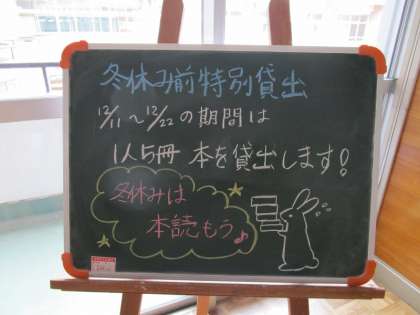 冬休み前特別貸出
12/11～12/22の期間は
1人5冊 本を貸出します!
冬休みは
本読もう♪